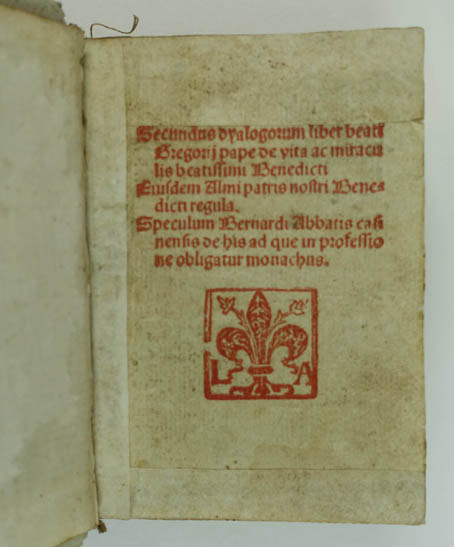 Secundus dyalogorum liber beati
Gregorij pape de vita ac miracu
lis beatissimi Benedicti
Eiusdem Almi patris nostri Bene
dicti regula.
Speculum Bernardi Abbatis casi
nensis de his ad que in professio
ne obligatur monachus.
L A